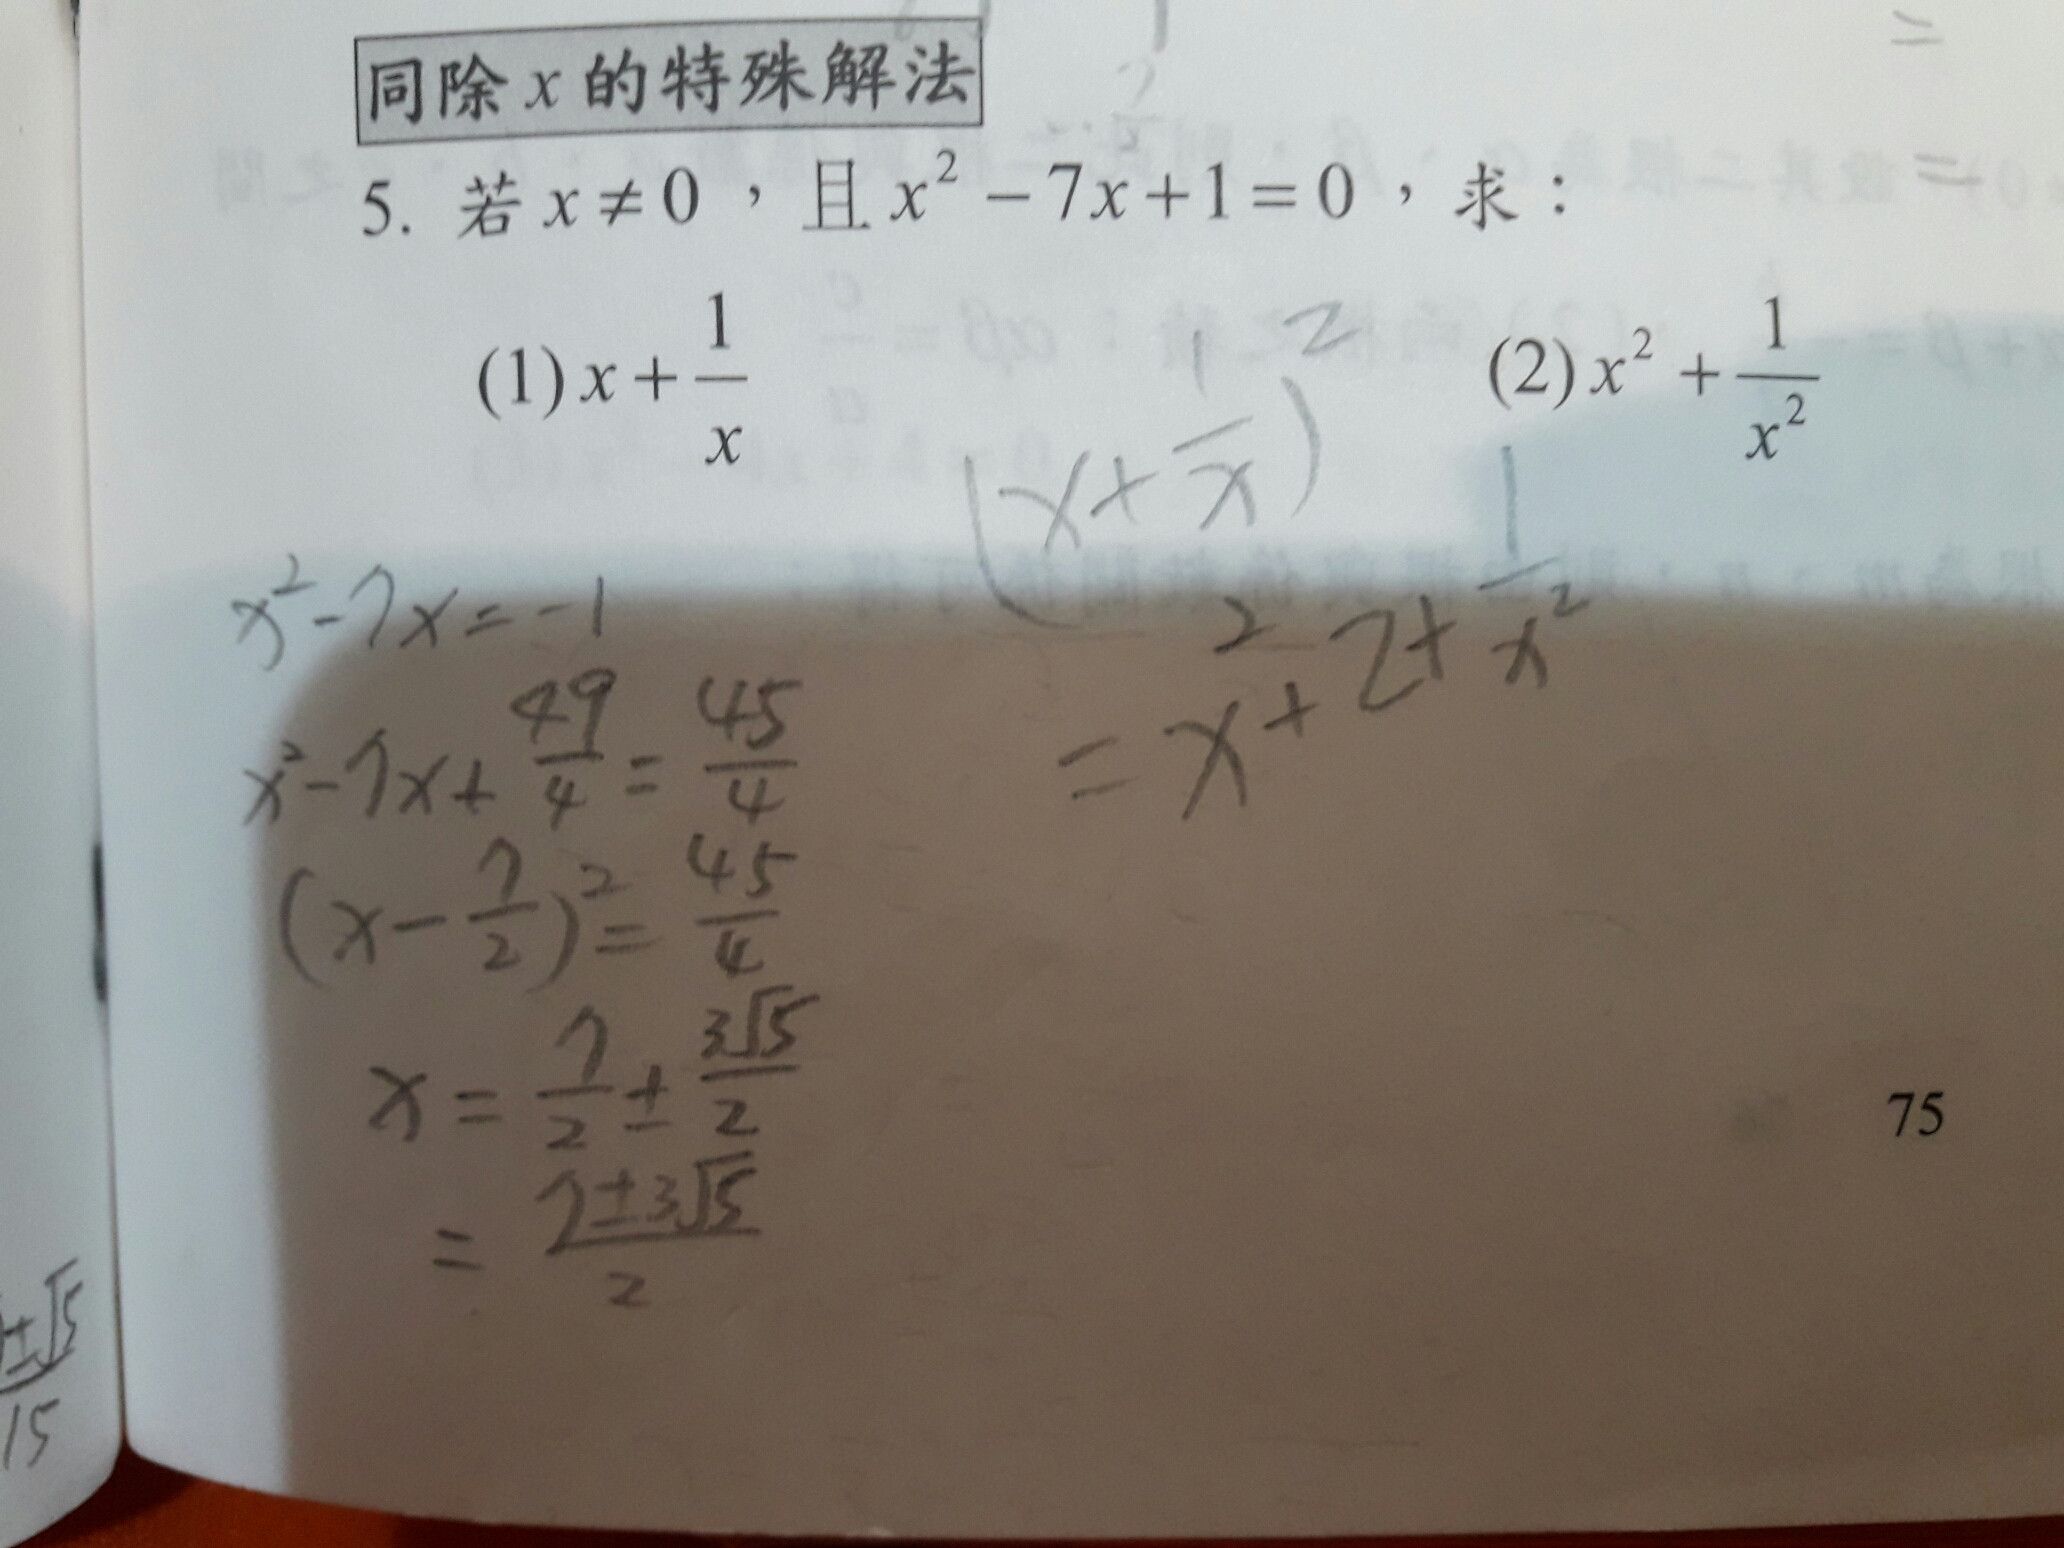 同除x的特殊解法
5. 若 x≠0，且 x² − 7x + 1 = 0，求：
(1) x + 1/x
(2) x² + 1/x²
(x + 1/x)²
= x² + 2 + 1/x²
x² − 7x = −1
x² − 7x + 49/4 = 45/4
(x − 7/2)² = 45/4
x = 7/2 ± 3√5/2
= 7±3√5/2
75
±√5
15